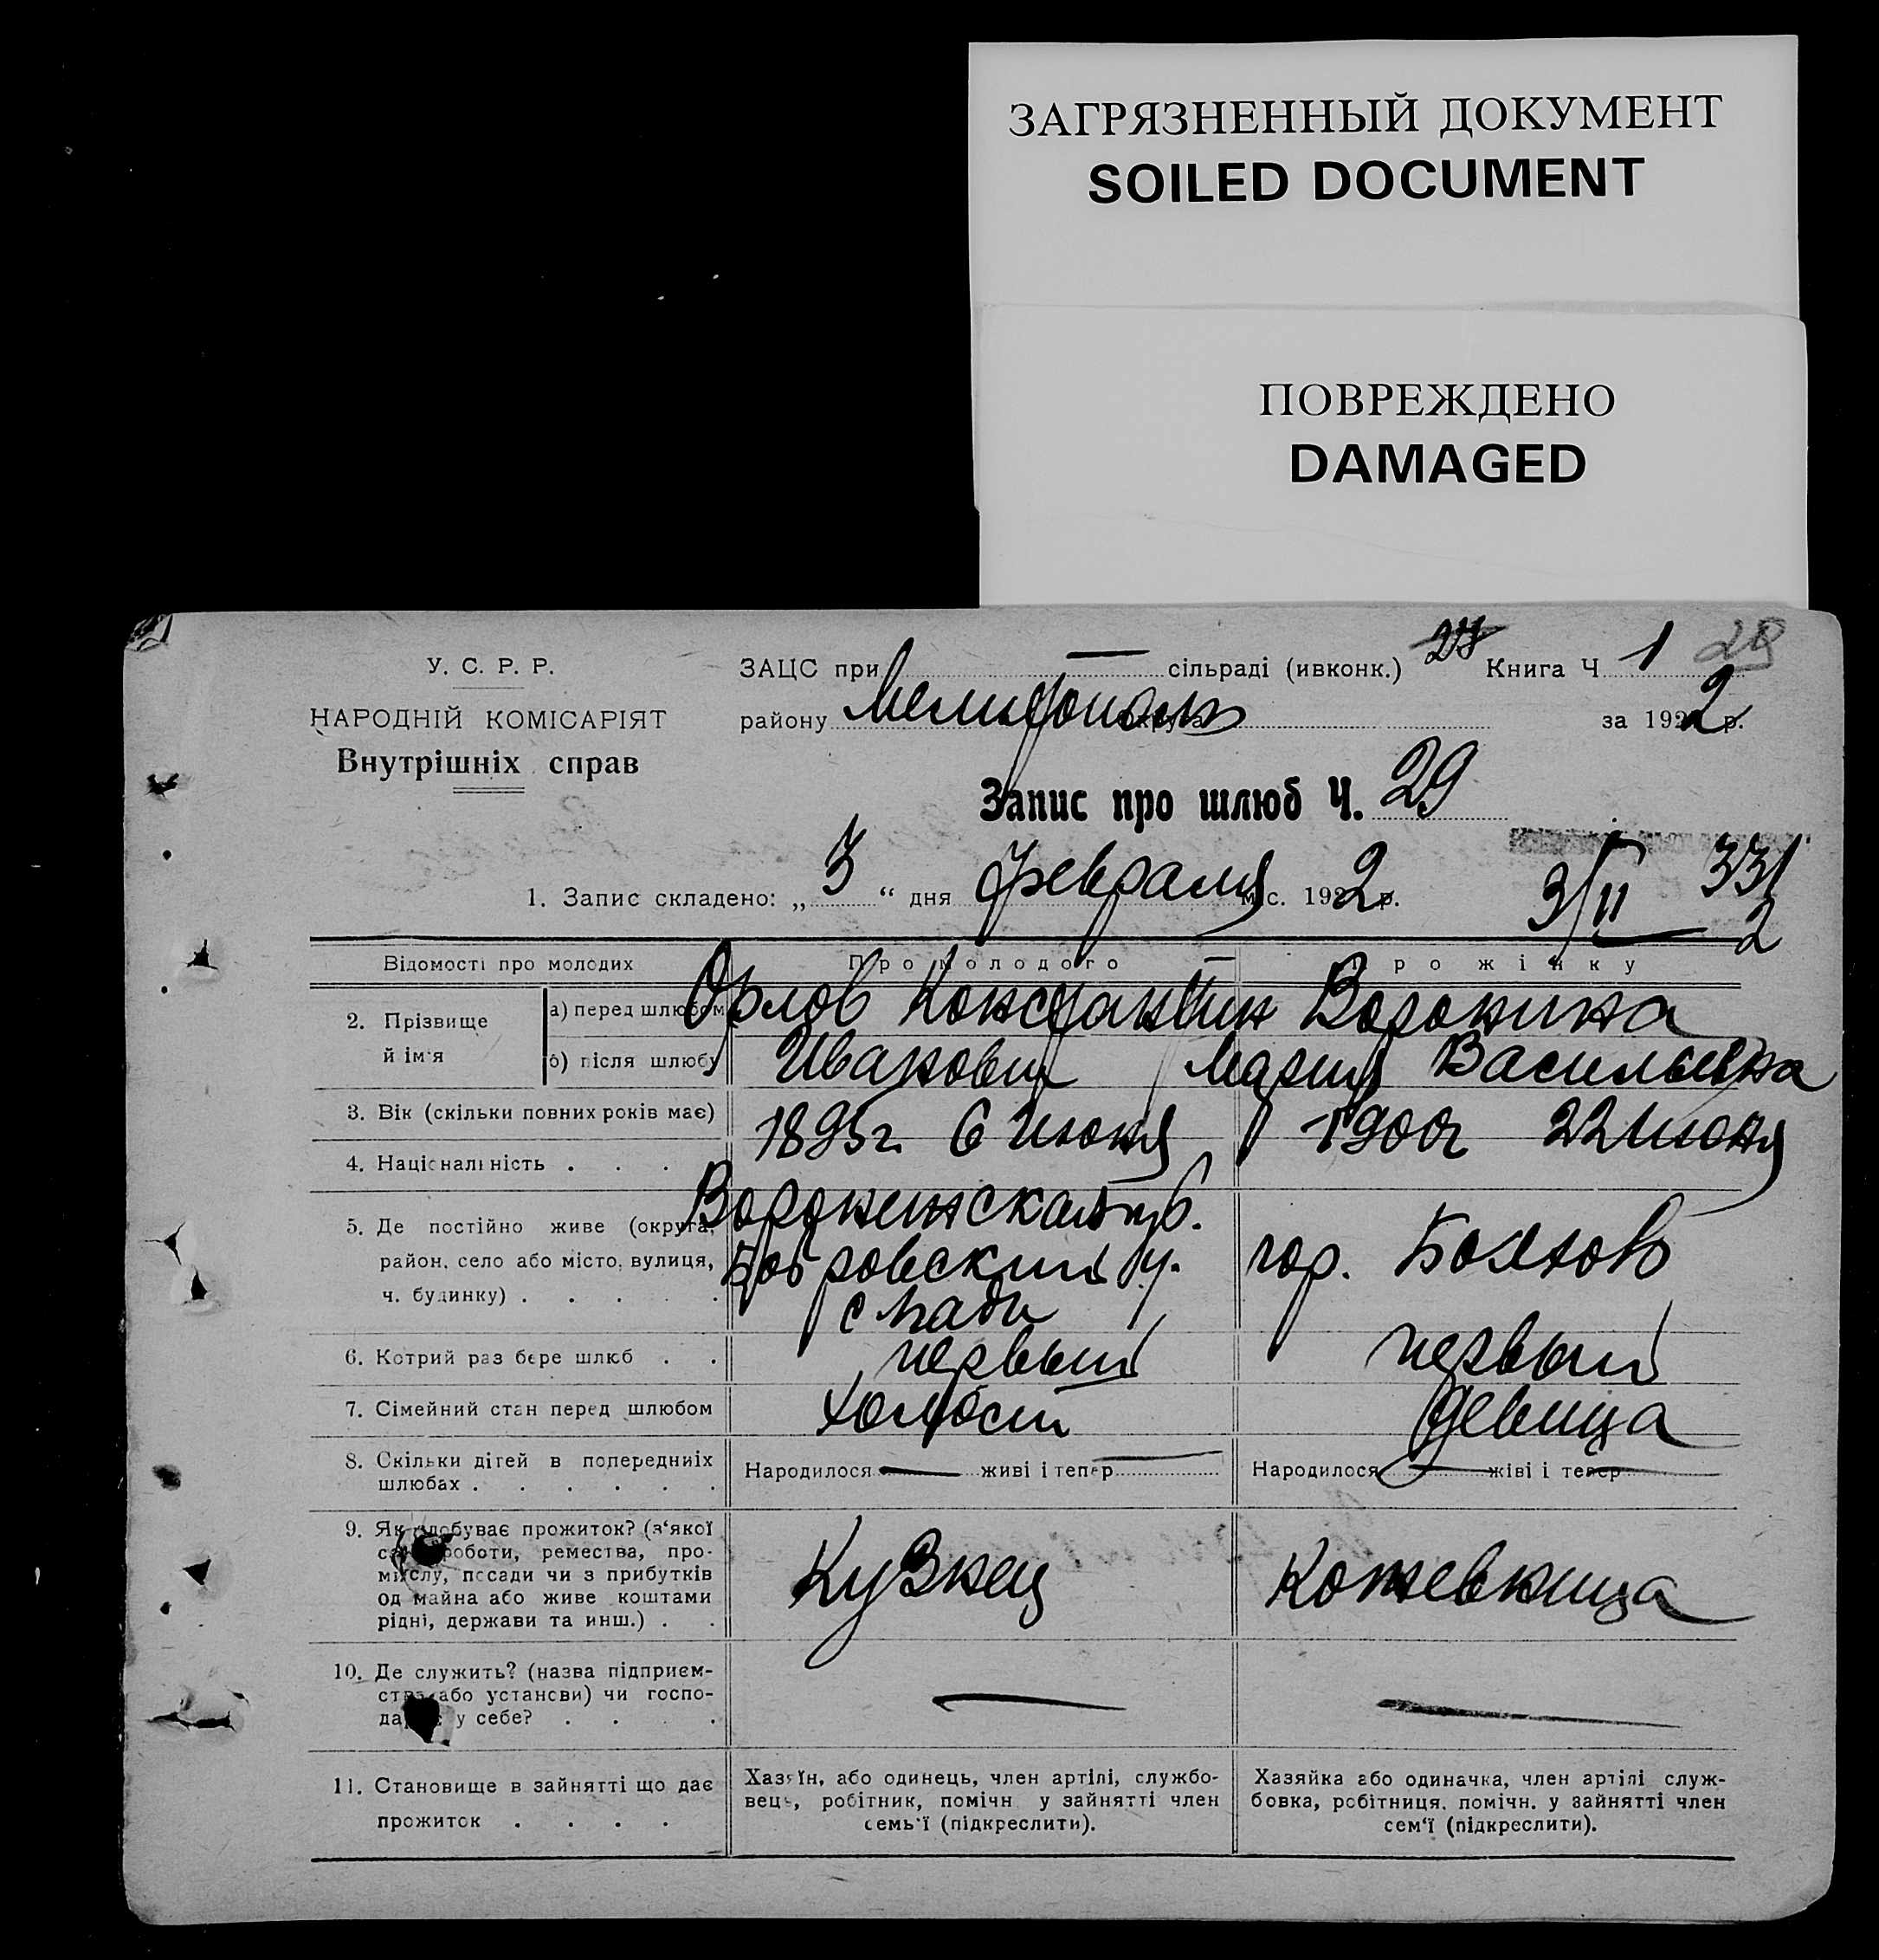 ЗАГРЯЗНЕННЫЙ ДОКУМЕНТ
SOILED DOCUMENT
ПОВРЕЖДЕНО
DAMAGED
У. С. Р. Р.
НАРОДНІЙ КОМІСАРІЯТ
Внутрішніх справ
ЗАЦС при — сільраді (ивконк.) 28 Книга Ч 1
району Мелитополь за 1922 р.
Запис про шлюб Ч. 29
1. Запис складено: „ 3 “ дня февраля міс. 1922 р. 3/II 331
2
Відомості про молодих Про молодого Про жінку
2. Прізвище й ім'я а) перед шлюбом Орлов Константин Воронина
б) після шлюбу Иванович Мария Васильевна
3. Вік (скільки повних років має) 1895 г. 6 Июня 1900 г 22 Июня
4. Національність . . .
5. Де постійно живе (округа, Воронежская губ.
район, село або місто, вулиця, Бобровский у. гор.
ч. будинку) . . . . . с
6. Котрий раз бере шлюб . . первый первый
7. Сімейний стан перед шлюбом холост девица
8. Скільки дітей в попередніх Народилося — живі і тепер — Народилося — жіві і тепер —
шлюбах . . . . . .
9. Як здобуває прожиток? (з'якої
роботи, ремества, про-
мислу, посади чи з прибутків Кузнец Кожевница
од майна або живе коштами
рідні, держави та инш.) . .
10. Де служить? (назва підприєм-
ства або установи) чи госпо- — —
дарює у себе? . . . .
11. Становище в зайнятті що дає Хазяїн, або одинець, член артілі, службо- Хазяйка або одиначка, член артілі служ-
вець, робітник, помічн. у зайнятті член бовка, робітниця, помічн. у зайнятті член
прожиток . . . . семь'ї (підкреслити). сем'ї (підкреслити).